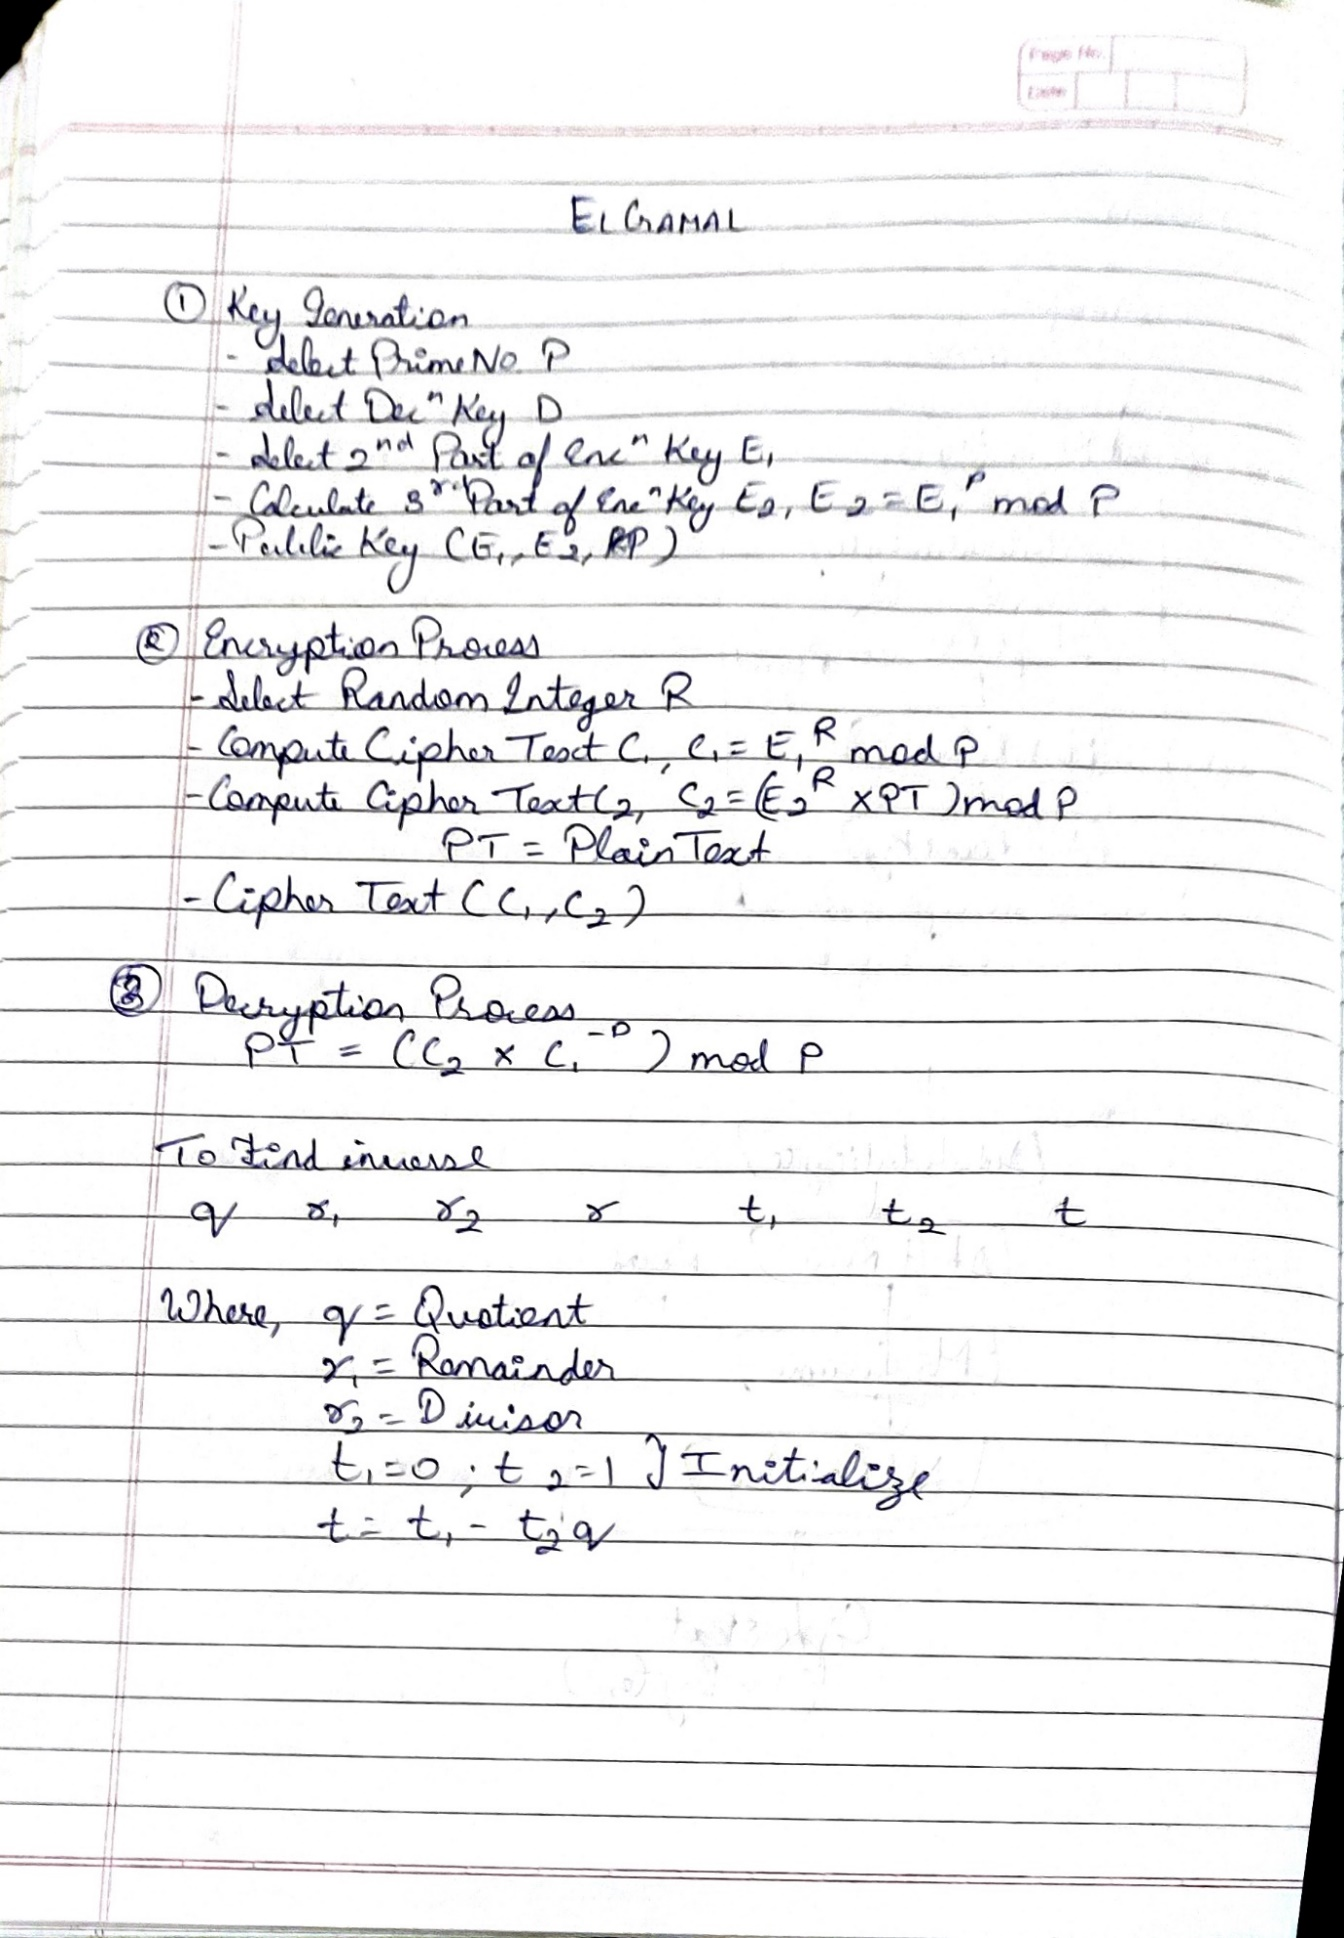 Page No.
Date
EL GAMAL
① Key Generation
- Select Prime No. P
- Select Decⁿ Key D
- Select 2nd Part of Encⁿ Key E₁
- Calculate 3rd Part of Encⁿ Key E₂, E₂ = E₁ᴾ mod P
- Public Key (E₁, E₂, P)
② Encryption Process
- Select Random Integer R
- Compute Cipher Text C₁, C₁ = E₁ᴿ mod P
- Compute Cipher Text C₂, C₂ = (E₂ᴿ × PT) mod P
PT = Plain Text
- Cipher Text (C₁, C₂)
③ Decryption Process
PT = (C₂ × C₁⁻ᴰ) mod P
To Find inverse
q r₁ r₂ r t₁ t₂ t
Where, q = Quotient
r₁ = Remainder
r₂ = Divisor
t₁=0 ; t₂=1 } Initialize
t = t₁ - t₂q